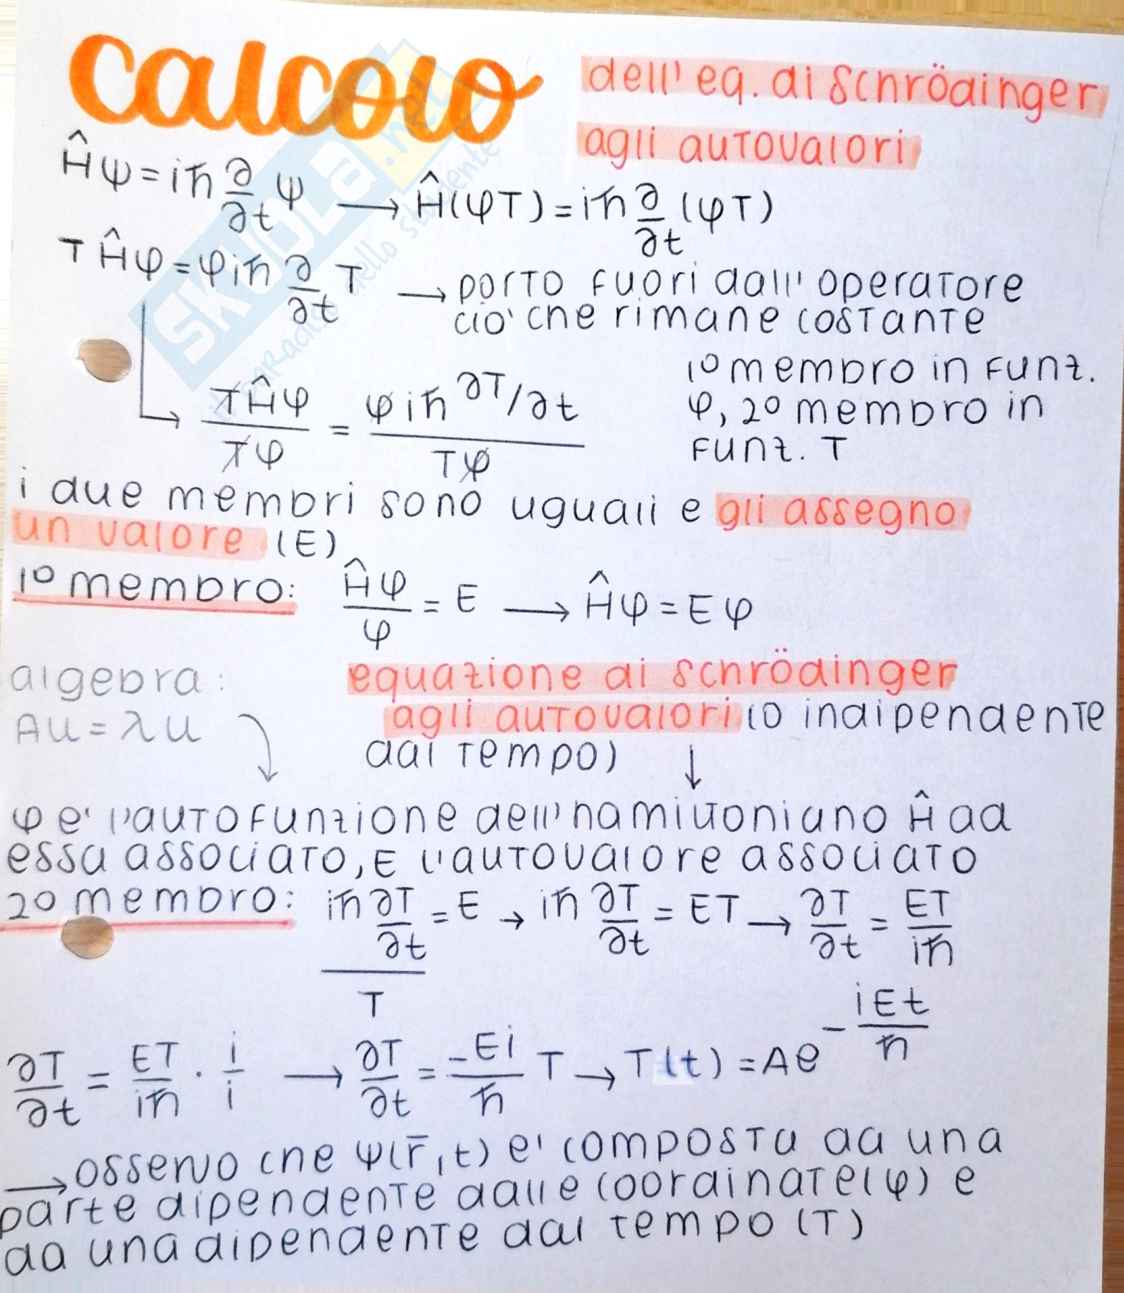 calcolo
dell'eq. di Schrödinger
agli autovalori
Ĥψ = iħ ∂/∂t ψ → Ĥ(φT) = iħ ∂/∂t (φT)
TĤφ = φiħ ∂/∂t T → porto fuori dall'operatore
ciò che rimane costante
TĤφ/Tφ = φiħ ∂T/∂t / Tφ
1º membro in funz.
φ, 2º membro in
funz. T
i due membri sono uguali e gli assegno
un valore (E)
1º membro: Ĥφ/φ = E → Ĥφ = Eφ
algebra:
Au = λu
equazione di Schrödinger
agli autovalori (o indipendente
dal tempo) ↓
φ e' l'autofunzione dell'hamiltoniano Ĥ ad
essa associato, E l'autovalore associato
2º membro: iħ ∂T/∂t / T = E → iħ ∂T/∂t = ET → ∂T/∂t = ET/iħ
∂T/∂t = ET/iħ · i/i → ∂T/∂t = -Ei/ħ T → T(t) = Ae^(-iEt/ħ)
→ osservo che ψ(r̄,t) e' composta da una
parte dipendente dalle coordinate(φ) e
da una dipendente dal tempo (T)
SKUOLA.net